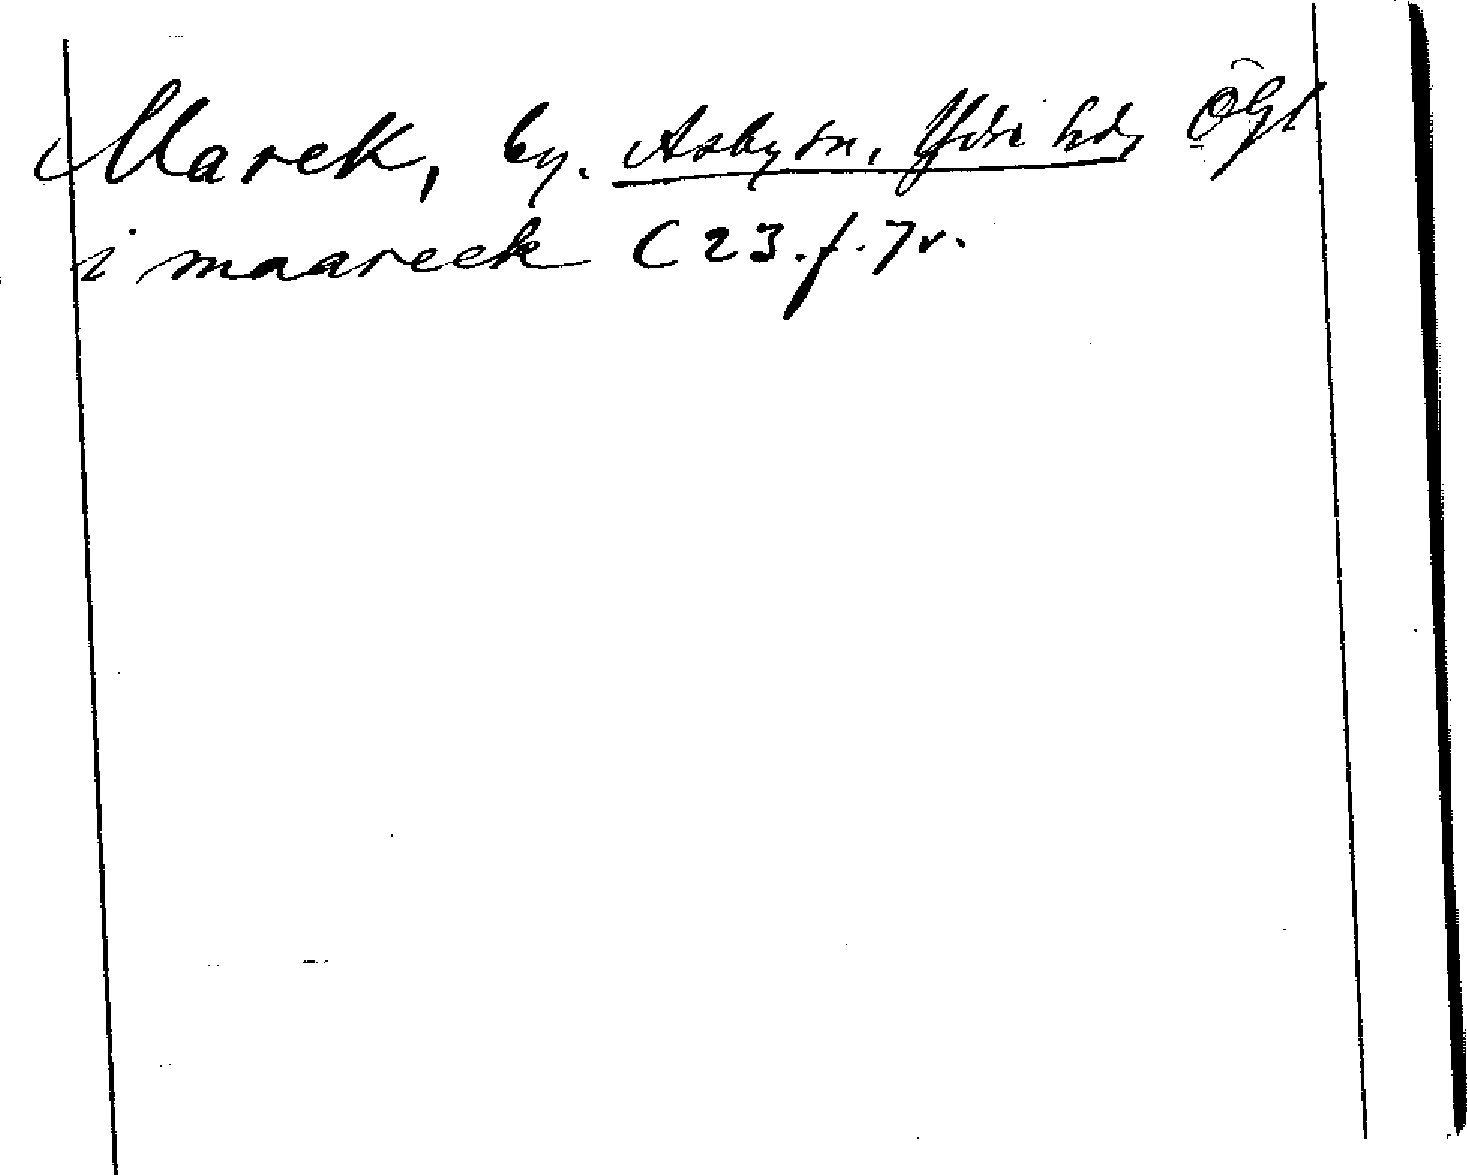 Marek, by. Asby sn, Ydre hdr, Ögl
i maareek C 23. f. 7 v.